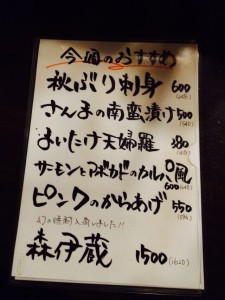 今週のおすすめ
秋ぶり刺身 600
(648)
さんまの南蛮漬け 500
(540)
まいたけ天婦羅 380
サーモンとアボカドのカルパ風
600 (648)
ピンクのからあげ 550
(594)
幻の焼酎入荷しました!!
森伊蔵 1500 (1620)